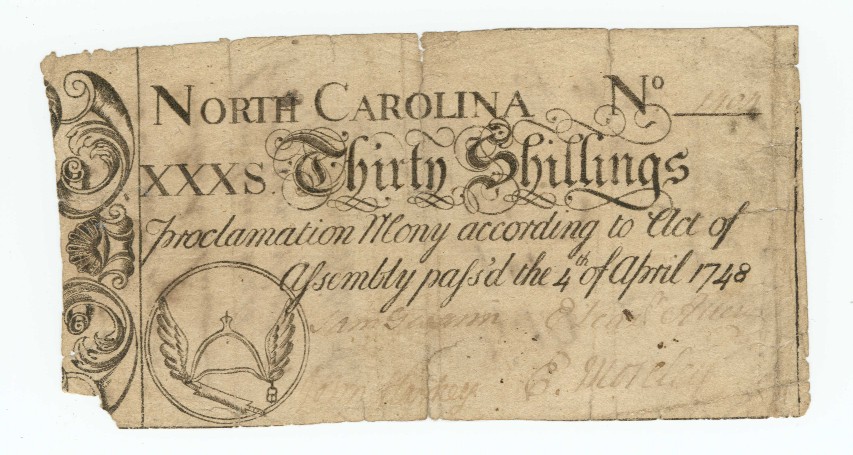 NORTH CAROLINA No 1404
XXXS. Thirty Shillings
Proclamation Mony according to Act of
Assembly pass'd the 4th of April 1748